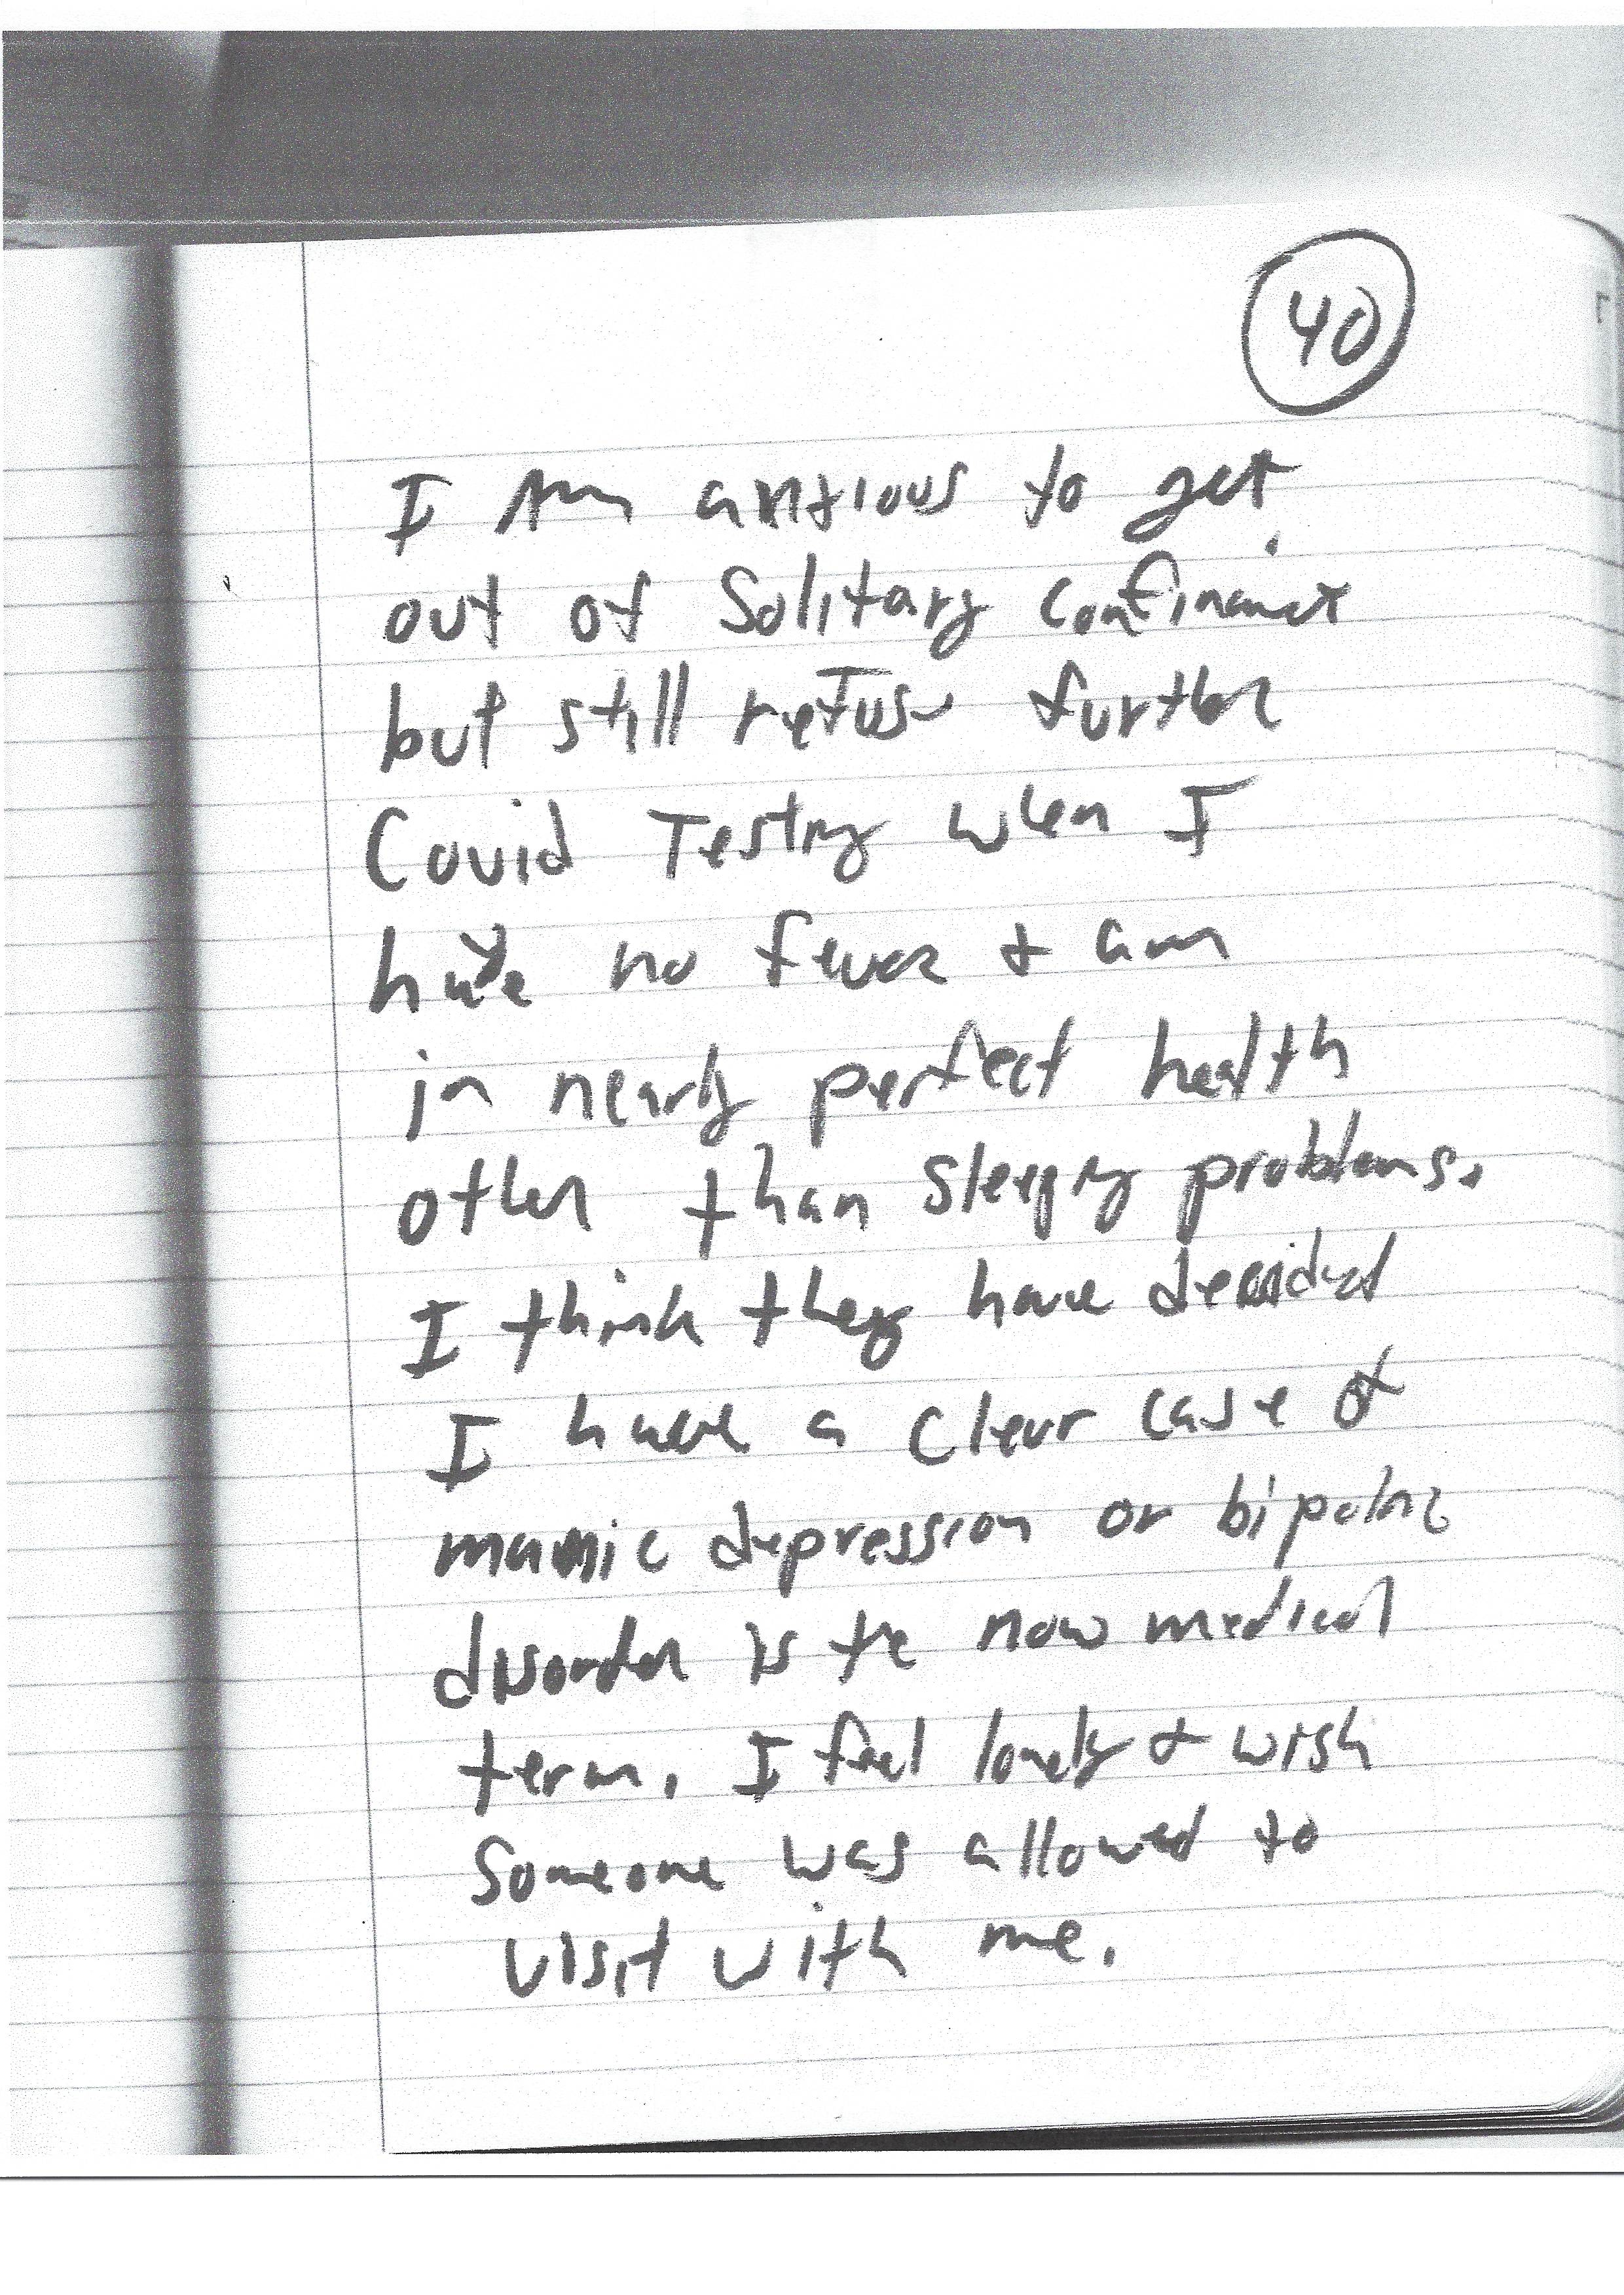 40
I Am anxious to get
out of Solitary Confinement
but still refuse further
Covid Testing when I
have no fever & am
in nearly perfect health
other than sleeping problems.
I think they have decided
I have a clear case of
manic depression or bipolar
disorder is the now medical
term. I feel lonely & wish
Someone was allowed to
visit with me.